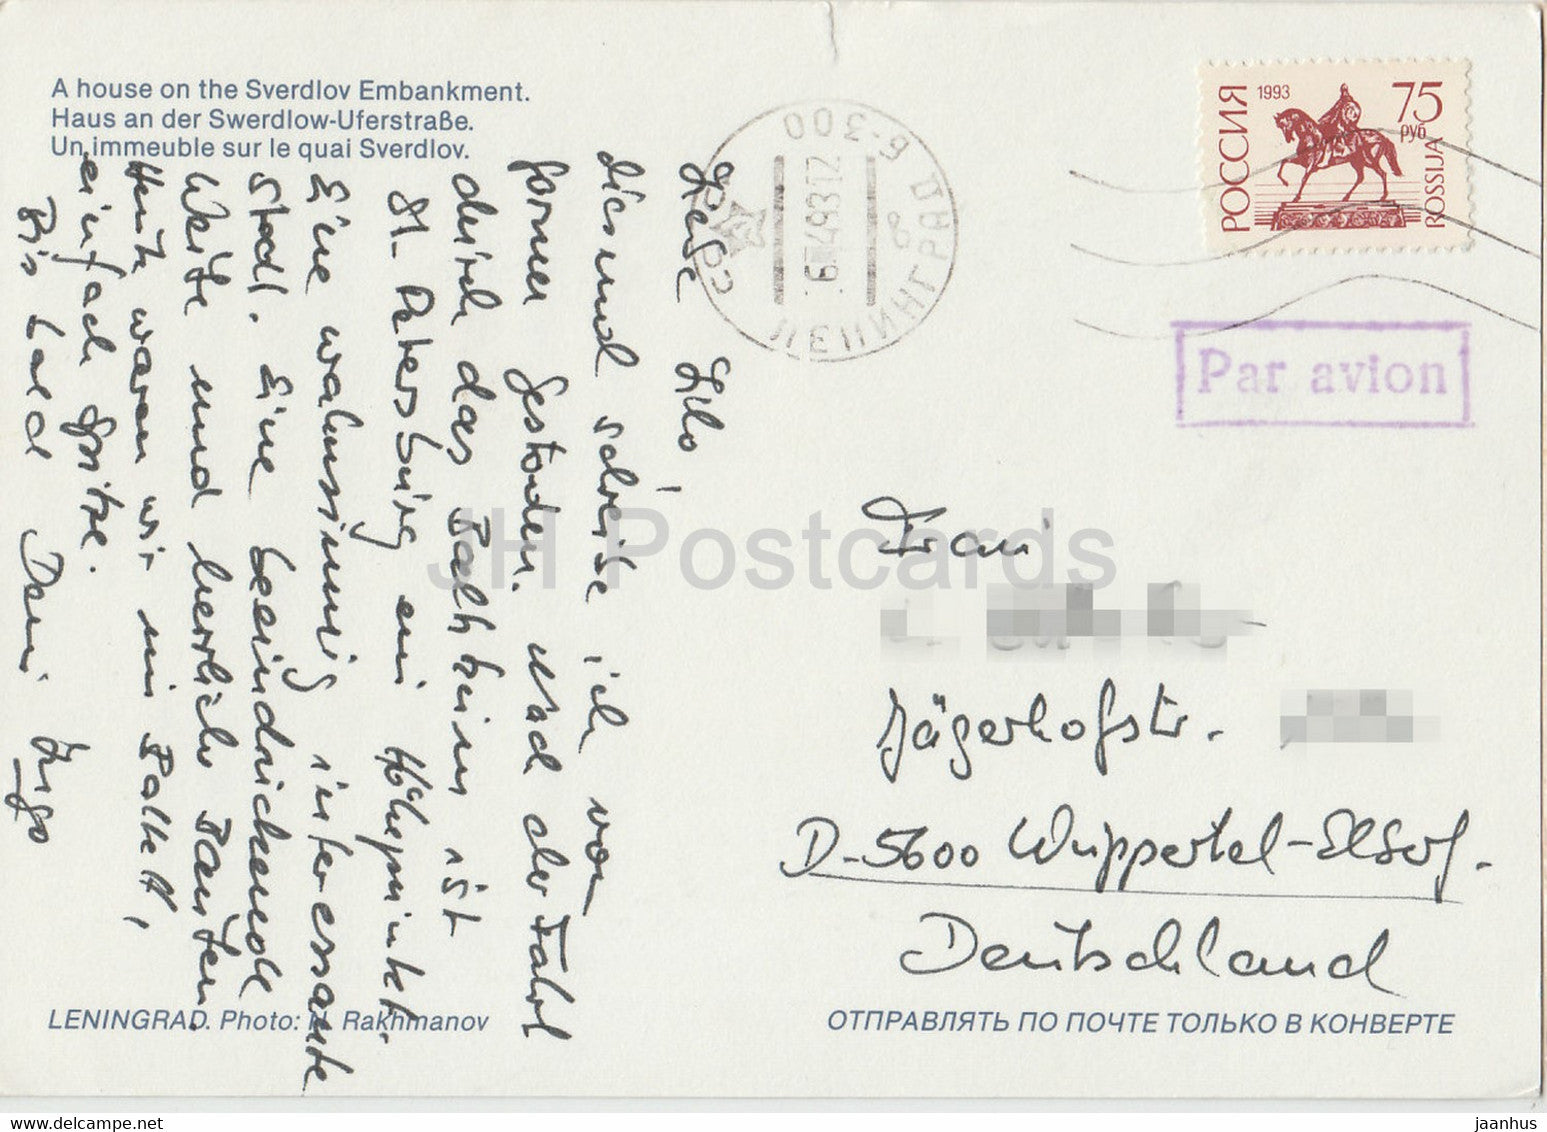 A house on the Sverdlov Embankment.
Haus an der Swerdlow-Uferstraße.
Un immeuble sur le quai Sverdlov.
Liebe Lilo,
diesmal schreibe ich vom
fernen Gestaden. Nach der Fahrt
durch das Baltikum ist
St. Petersburg ein Höhepunkt.
Eine wahnsinnig interessante
Stadt. Eine beeindruckende
Weite und herrliche Bauten.
Heute waren wir im Ballett,
einfach Spitze.
Bis bald Dein Ingo
LENINGRAD. Photo: Rakhmanov
СССР
ЛЕНИНГРАД
6-300
РОССИЯ
1993
75
руб
ROSSIJA
Par avion
Frau
Jägerhofstr.
D-5600 Wuppertal-Elberf.
Deutschland
ОТПРАВЛЯТЬ ПО ПОЧТЕ ТОЛЬКО В КОНВЕРТЕ
JH Postcards
jaanhus @ delcampe.net